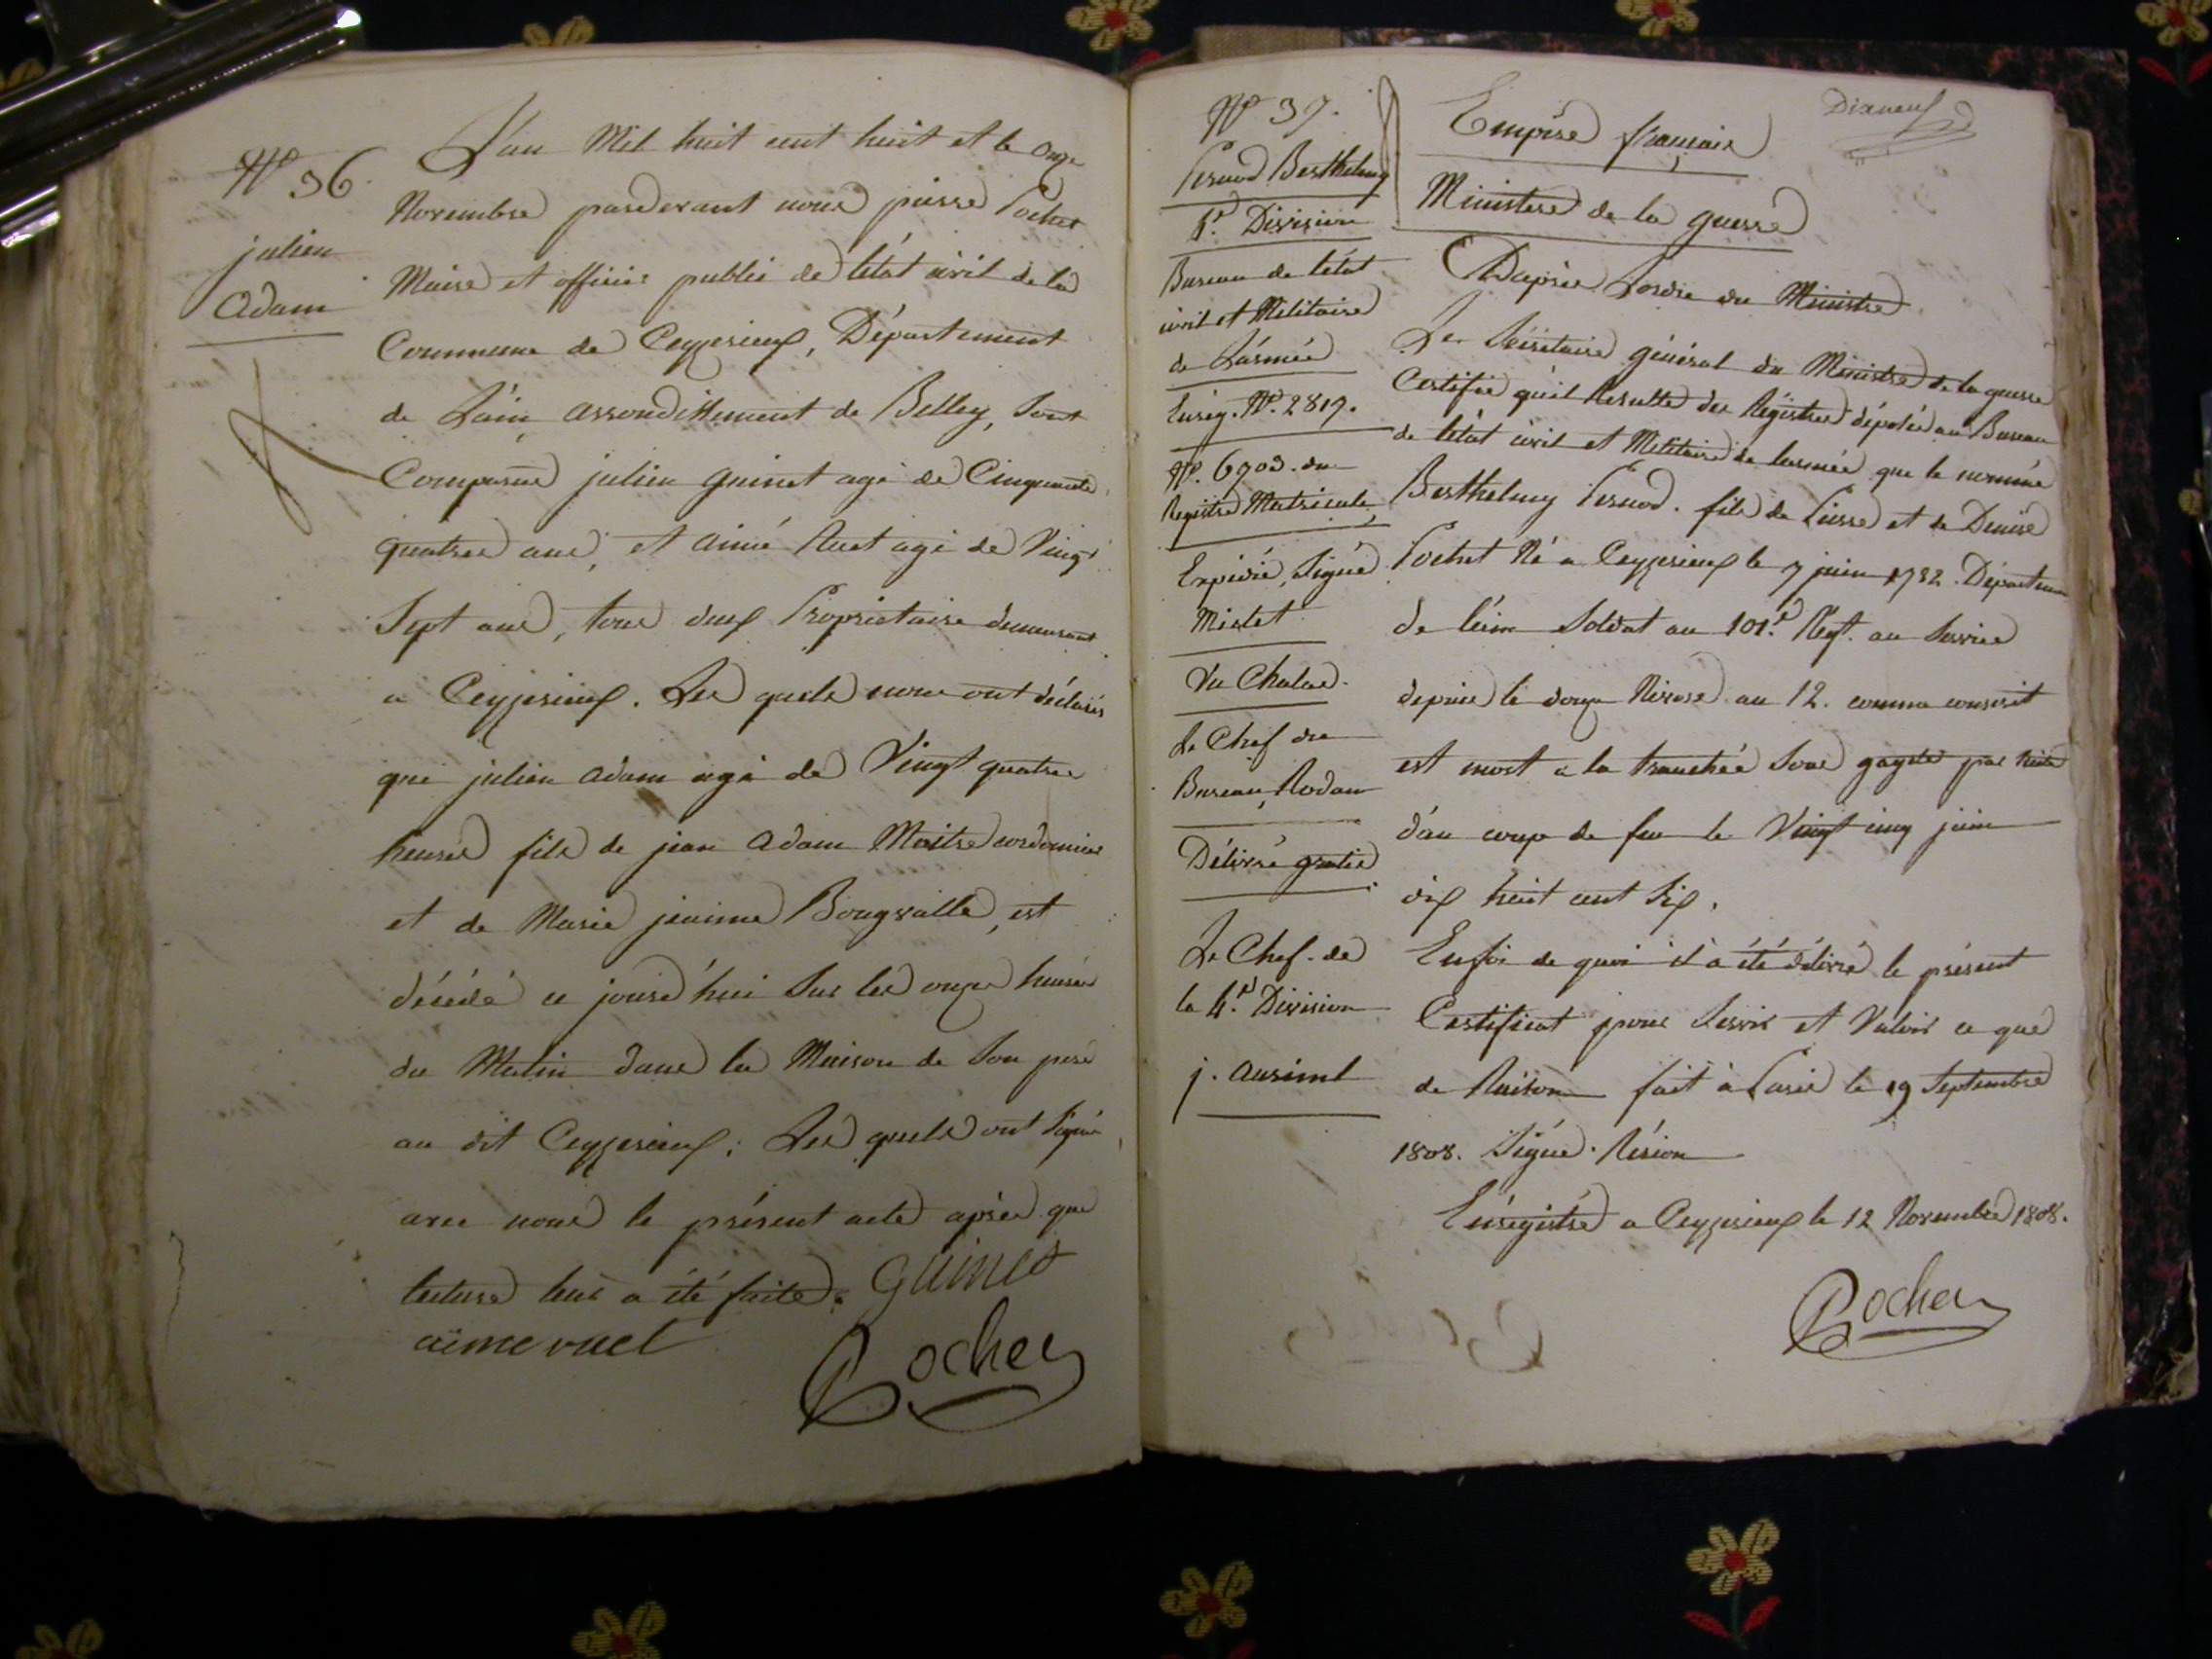 N° 36
julien
Adam
L'an Mil huit cent huit et le onze
Novembre pardevant nous pierre Pochet
Maire et officier public de l'état civil de la
Commune de Ceyzerieux, Département
de L'ain arrondissement de Belley, sont
Comparus julien guinet agé de Cinquante
quatres ans, et aimé Ruet agé de Vingt
Sept ans, tous deux Propriétaire demeurant
a Ceyzerieux. Les quels nous ont déclarés
que julien adam agé de Vingt quatres
heures fils de jean adam Maitre cordonnier
et de Marie jeanne Bougvalle, est
décédé ce jourd'hui Sur les onze heures
du Matin dans la Maison de Son pere
au dit Ceyzerieux; Les quels ont Signé
avec nous le présent acte après que
lecture leur a été faite. Guinet
aime ruet
Pochet
Dixneuf
N° 37.
Pernod Berthelmy
Bureau de l'état
civil et Militaire
de L'armée
Enrég. N°. 2819.
N°. 6903. du
Registre Matricule
Expédié, Signé
Mislet
Vu Chalas.
Le Chef du
Bureau, Rodau
Délivré gratis
Le Chef de
la 4.e Division
j.
Empire français
Ministere de la guerre
D'après L'ordre du Ministre
Le Sécrétaire général du Ministre de la guerre
Certifie qu'il Resulte des Régistres déposés au Bureau
de l'état civil et Militaire de l'armée que le nommé
Berthelmy Pernod. fils de Pierre et de Denise
Pochet Né a Ceyzerieux le 7 juin 1782. Départem
de l'ain Soldat au 101.e Regt. au Service
depuis le douze Nivose an 12. comme conscrit
est mort a la tranchée Sous gayete par Suite
d'un coup de feu le Vingt cinq juin
dix huit cent Six.
Enfoi de quoi il a été délivré le présent
Certificat pour Servir et Valoir ce que
de Raison fait à Paris le 19 Septembre
1808. Signé.
Enrégistré a Ceyzerieux le 12 Novembre 1808.
Pochet